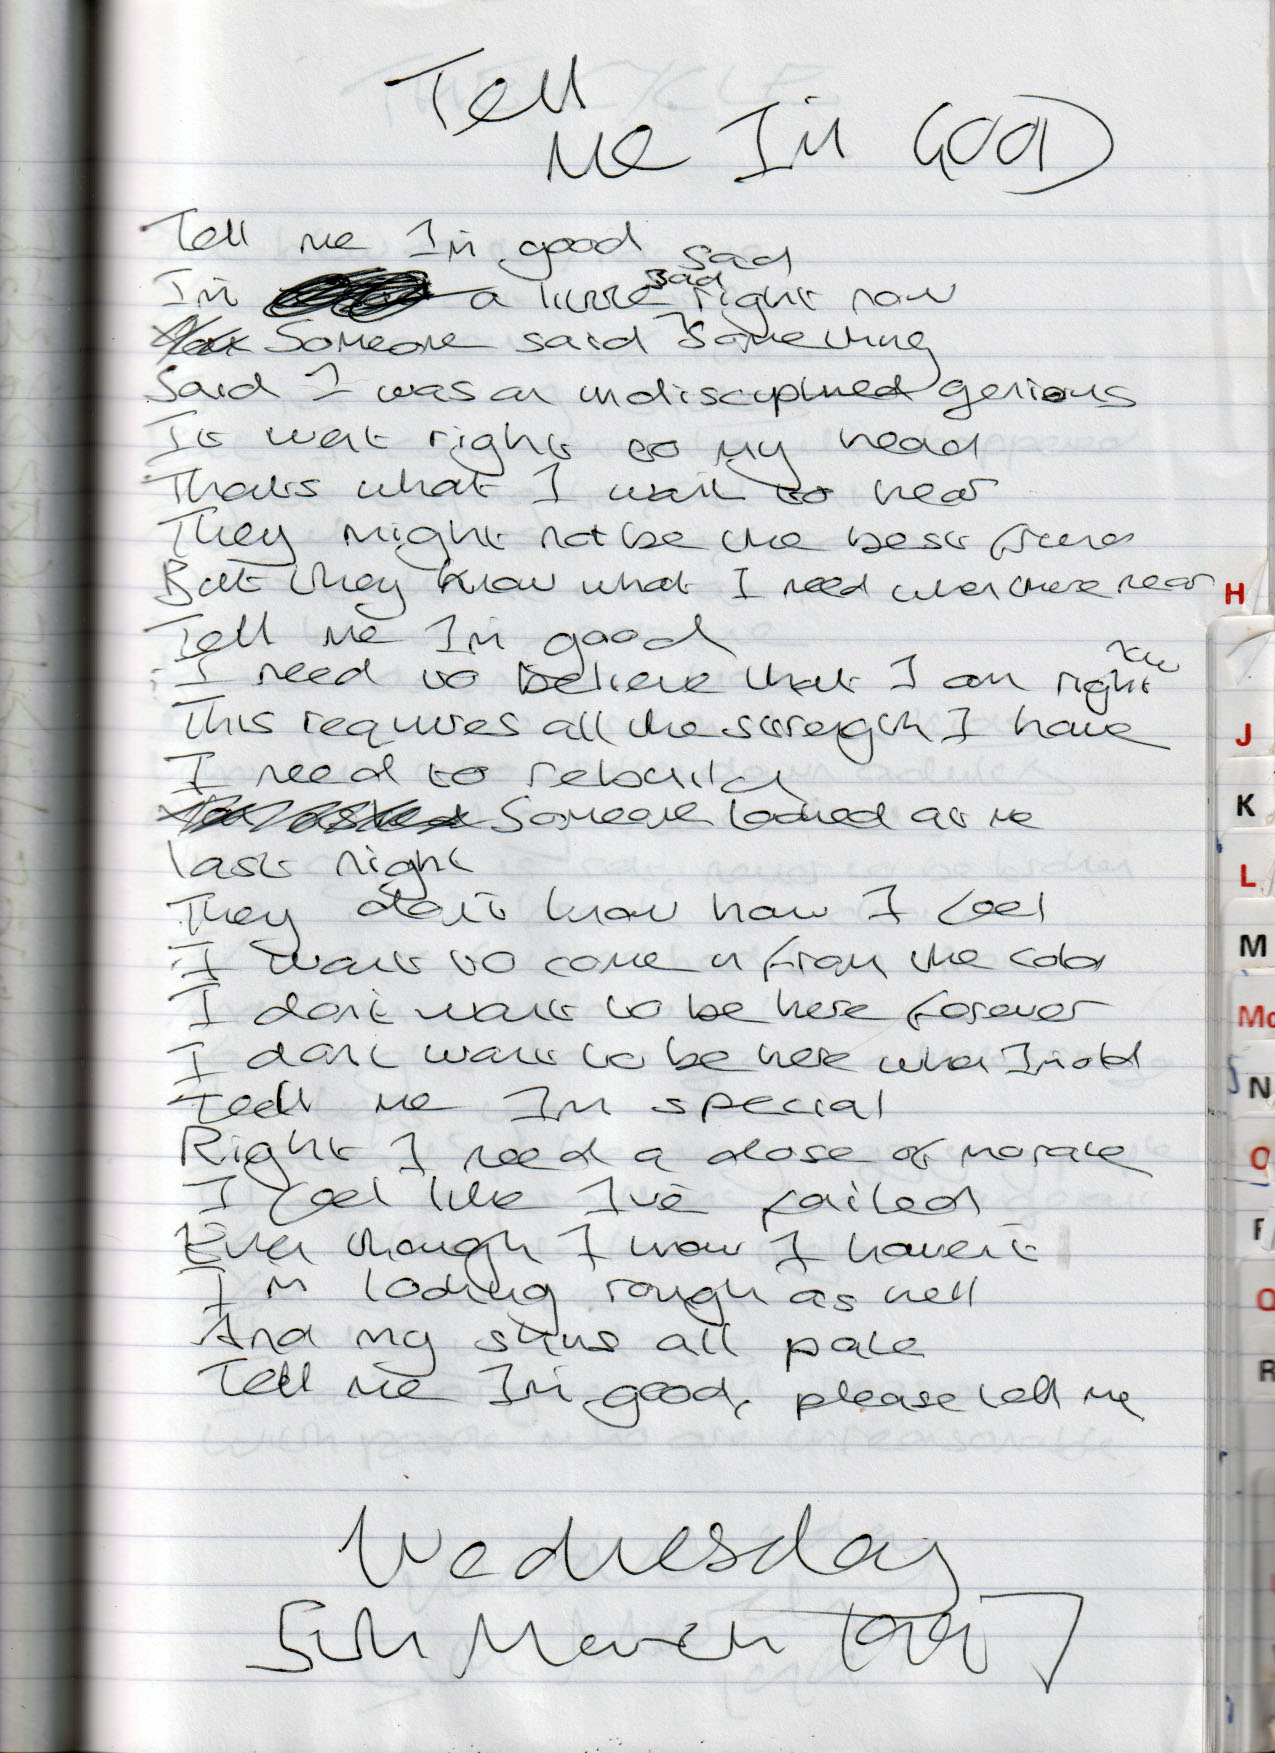 Tell
me Im GOOD
Tell me Im good
sad
Im a little sad right now
Someone said something
Said I was an undisciplined genious
It went right to my head
Thats what I want to hear
They might not be the best friend
But they know what I need when there near
Tell me Im good
I need to believe that I am right
This requires all the strength I have
I need to rebuild
Someone looked at me
last night
They don't know how I feel
I want to come in from the cold
I don't want to be here forever
I don't want to be here when Im old
Tell me Im special
Right I need a dose of morale
I feel like I've failed
Even though I know I haven't
I'm looking rough as hell
And my skins all pale
Tell me Im good, please tell me
Wednesday
5th March
H
J
K
L
M
Mc
N
O
P
Q
R